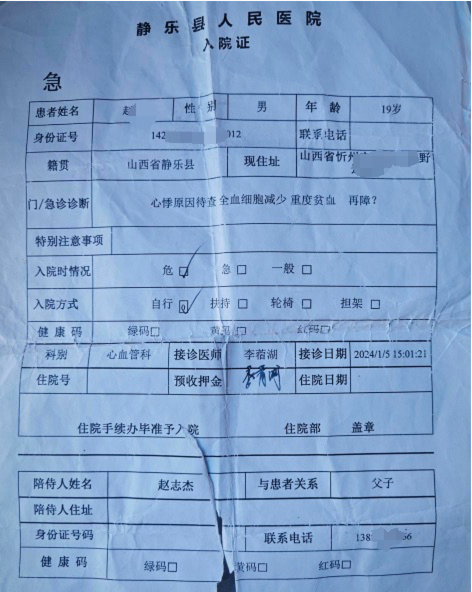 静乐县人民医院
入院证
急
患者姓名 赵 性别 男 年龄 19岁
身份证号 142 012 联系电话
籍贯 山西省静乐县 现住址 山西省忻州 野
门/急诊诊断 心悸原因待查 全血细胞减少 重度贫血 再障?
特别注意事项
入院时情况 危□ 急□ 一般□
入院方式 自行□ 扶持□ 轮椅□ 担架□
健康码 绿码□ 黄码□ 红码□
科别 心血管科 接诊医师 李蓿湖 接诊日期 2024/1/5 15:01:21
住院号 预收押金 住院日期
住院手续办毕准予入院 住院部 盖章
陪侍人姓名 赵志杰 与患者关系 父子
陪侍人住址
身份证号码 联系电话 138 66
健康码 绿码□ 黄码□ 红码□